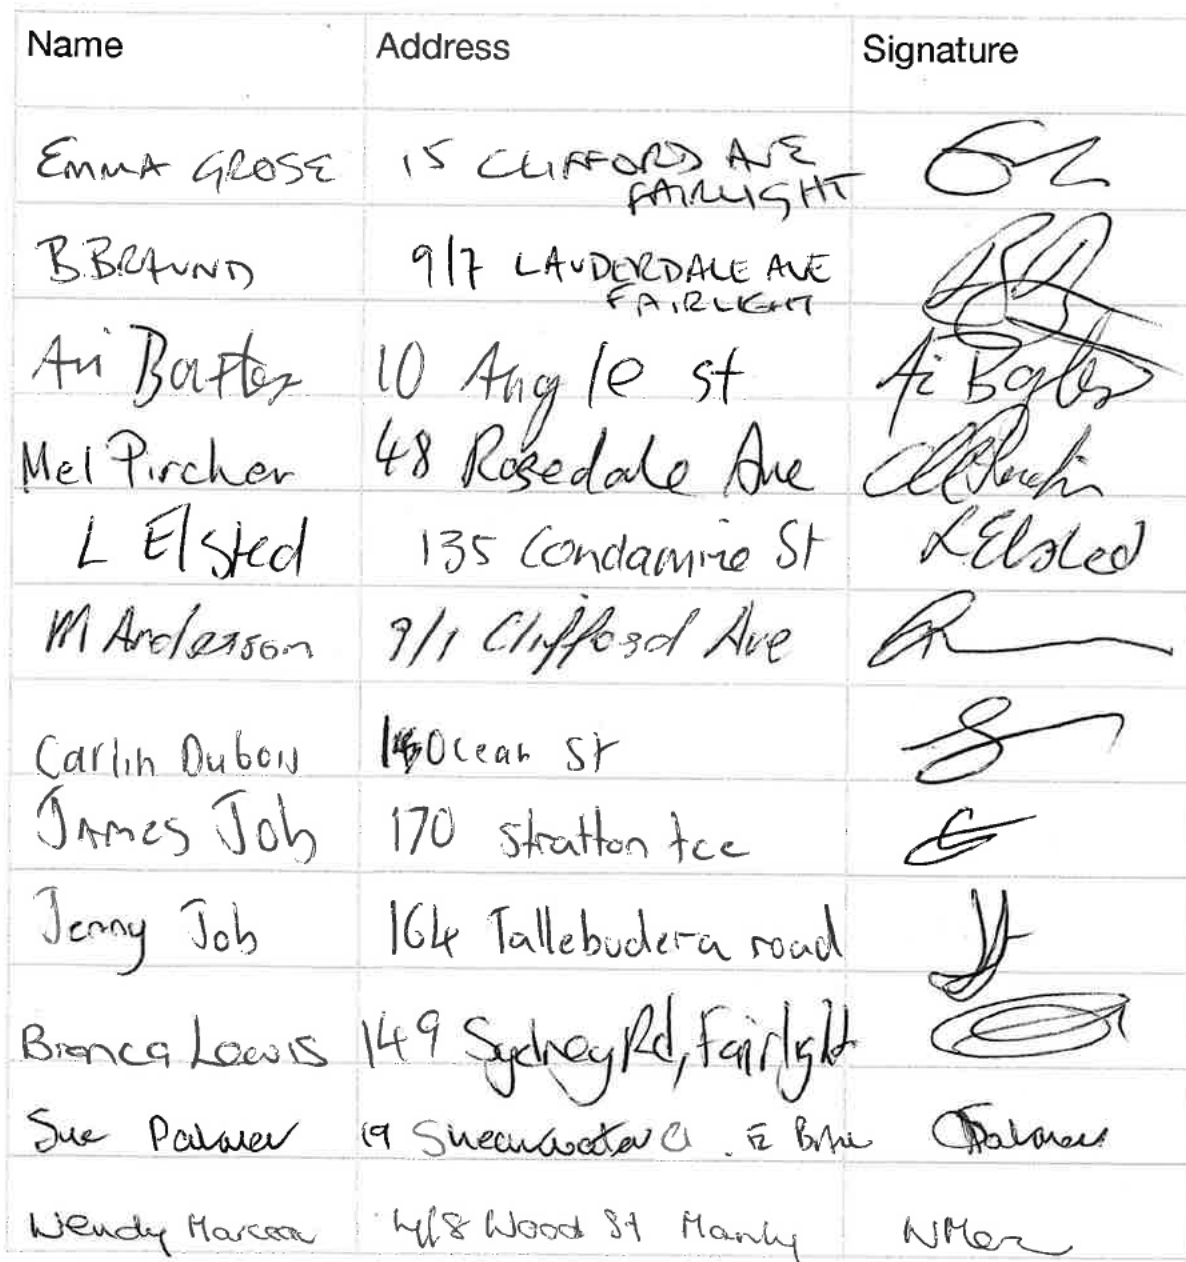 Name Address Signature
EMMA GROSE 15 CLIFFORD AVE
FAIRLIGHT
B. BRAUND 9/7 LAUDERDALE AVE
FAIRLIGHT
Ari 10 Angle st
Mel Pircher 48 Rosedale Ave
L Elsted 135 Condamine St L Elsted
M Anderson 9/1 Clifford Ave
Carlin Dubois Ocean St
James Job 170 Stratton tce
Jenny Job 164 Tallebudera road
Bianca Lewis 149 Sydney Rd, Fairlight
Sue Palmer 19 Shearwater Palmer
Wendy 4/8 Wood St Manly